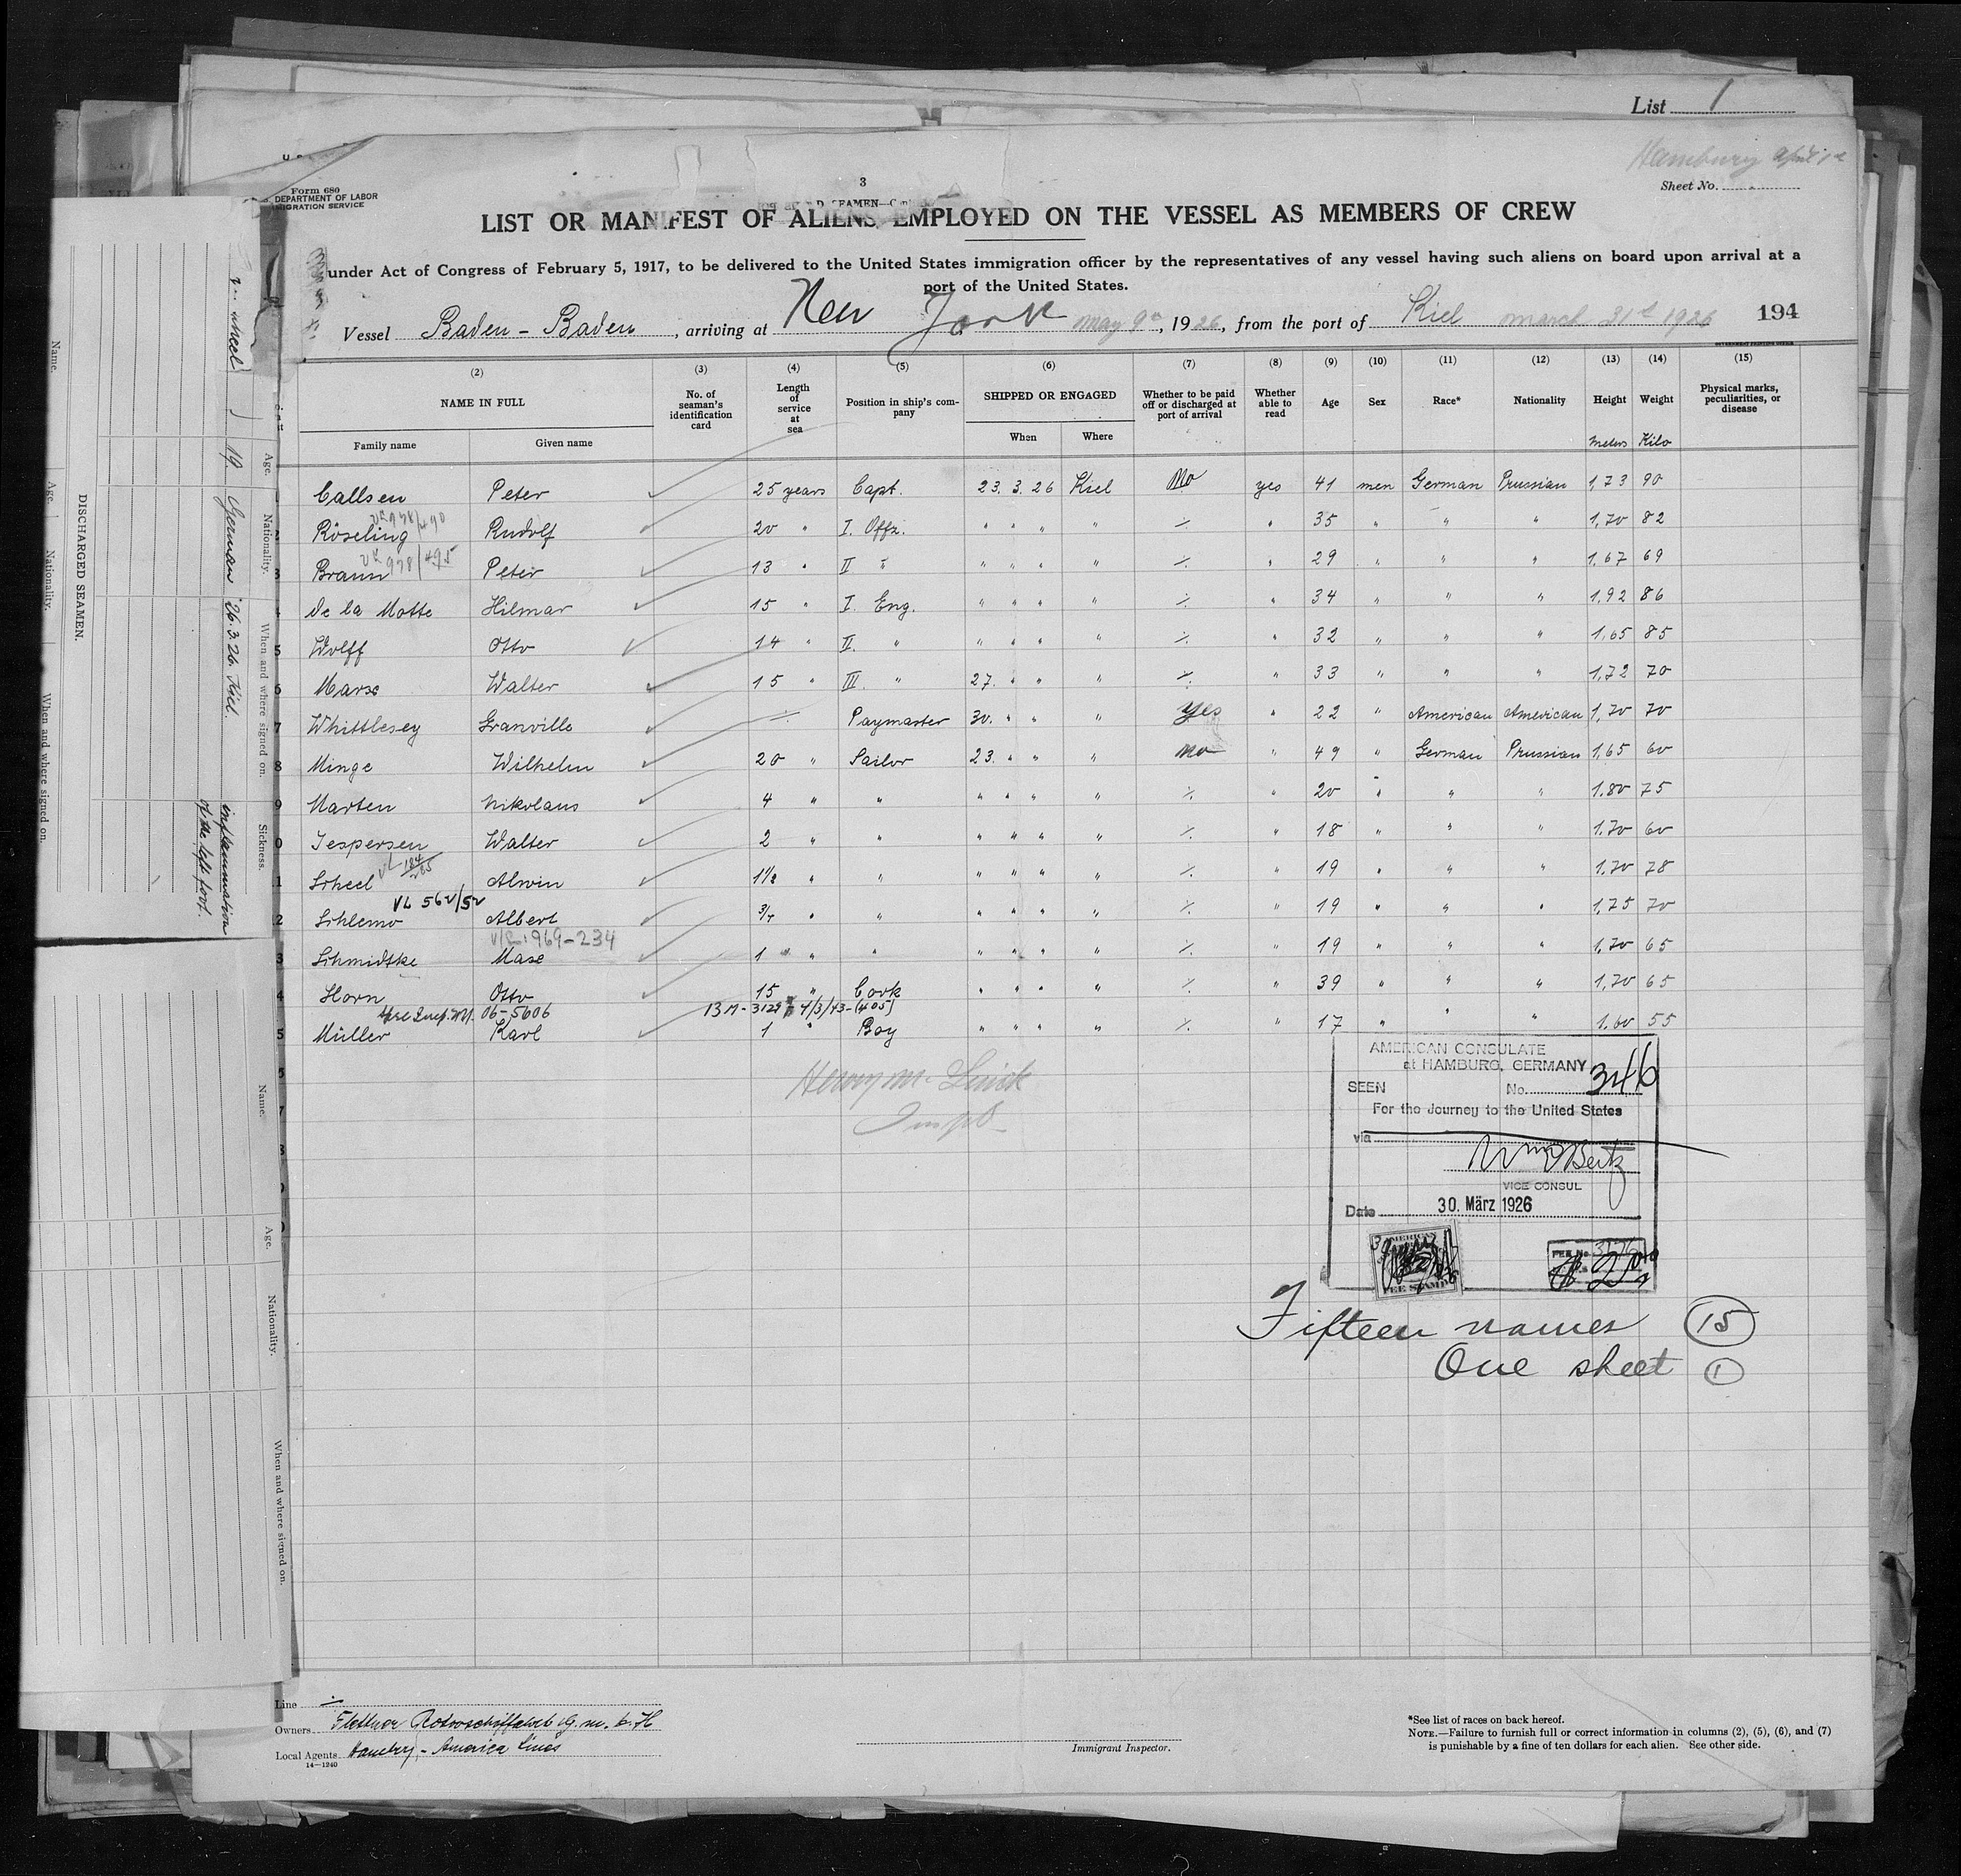 List 1
Hamburg April 1st
Sheet No.
Form 680
DEPARTMENT OF LABOR
IMMIGRATION SERVICE
3
LIST OR MANIFEST OF ALIENS EMPLOYED ON THE VESSEL AS MEMBERS OF CREW
under Act of Congress of February 5, 1917, to be delivered to the United States immigration officer by the representatives of any vessel having such aliens on board upon arrival at a
port of the United States.
Vessel Baden-Baden, arriving at New York may 9th, 1926, from the port of Kiel march 31st 1926 194
(2) (3) (4) (5) (6) (7) (8) (9) (10) (11) (12) (13) (14) (15)
NAME IN FULL No. of seaman's identification card Length of service at sea Position in ship's company SHIPPED OR ENGAGED Whether to be paid off or discharged at port of arrival Whether able to read Age Sex Race* Nationality Height Weight Physical marks, peculiarities, or disease
Family name Given name When Where meters Kilo
Callsen Peter 25 years Capt. 23. 3. 26 Kiel No yes 41 men German Prussian 1,73 90
Röseling Rudolf 20 " I. Offz. " " " " ⁒ " 35 " " " 1,70 82
Braun Peter 13 " II " " " " " ⁒ " 29 " " " 1,67 69
de la Motte Hilmar 15 " I. Eng. " " " " ⁒ " 34 " " " 1,92 86
Wolff Otto 14 " II. " " " " " ⁒ " 32 " " " 1,65 85
Marx Walter 15 " III. " 27. " " " ⁒ " 33 " " " 1,72 70
Whittlesey Granville ⁒ Paymaster 30. " " " Yes " 22 " American American 1,70 70
Minge Wilhelm 20 " Sailor 23. " " " no " 49 " German Prussian 1,65 60
Marten Nikolaus 4 " " " " " " ⁒ " 20 " " " 1.80 75
Jespersen Walter 2 " " " " " " ⁒ " 18 " " " 1.70 60
Scheel Alwin 1½ " " " " " " ⁒ " 19 " " " 1.70 78
VL 562/52
Schlemo Albert ¾ " " " " " " ⁒ " 19 " " " 1,75 70
969-234
Schmidtke Max 1 " " " " " " ⁒ " 19 " " " 1,70 65
Horn Otto 15 " Cook " " " " ⁒ " 39 " " " 1,70 65
06-5606 4/3/43-(405)
Müller Karl 1 " Boy " " " " ⁒ " 17 " " " 1.60 55
AMERICAN CONSULATE
at HAMBURG, GERMANY
SEEN No. 346
For the Journey to the United States
via
VICE CONSUL
Date 30. März 1926
FEE STAMP
FEE No.
Fifteen names 15
One sheet 1
Line
Owners Flettner Rotorschiffahrt G.m.b.H
Local Agents Hamburg-America Lines
14—1240
Immigrant Inspector.
*See list of races on back hereof.
NOTE.—Failure to furnish full or correct information in columns (2), (5), (6), and (7)
is punishable by a fine of ten dollars for each alien. See other side.
DISCHARGED SEAMEN.
Name. Age. Nationality. When and where signed on.
Age. Nationality. When and where signed on. Sickness.
19 German 26.3.26. Kiel. inflammation
of the left foot.
Name. Age. Nationality. When and where signed on.